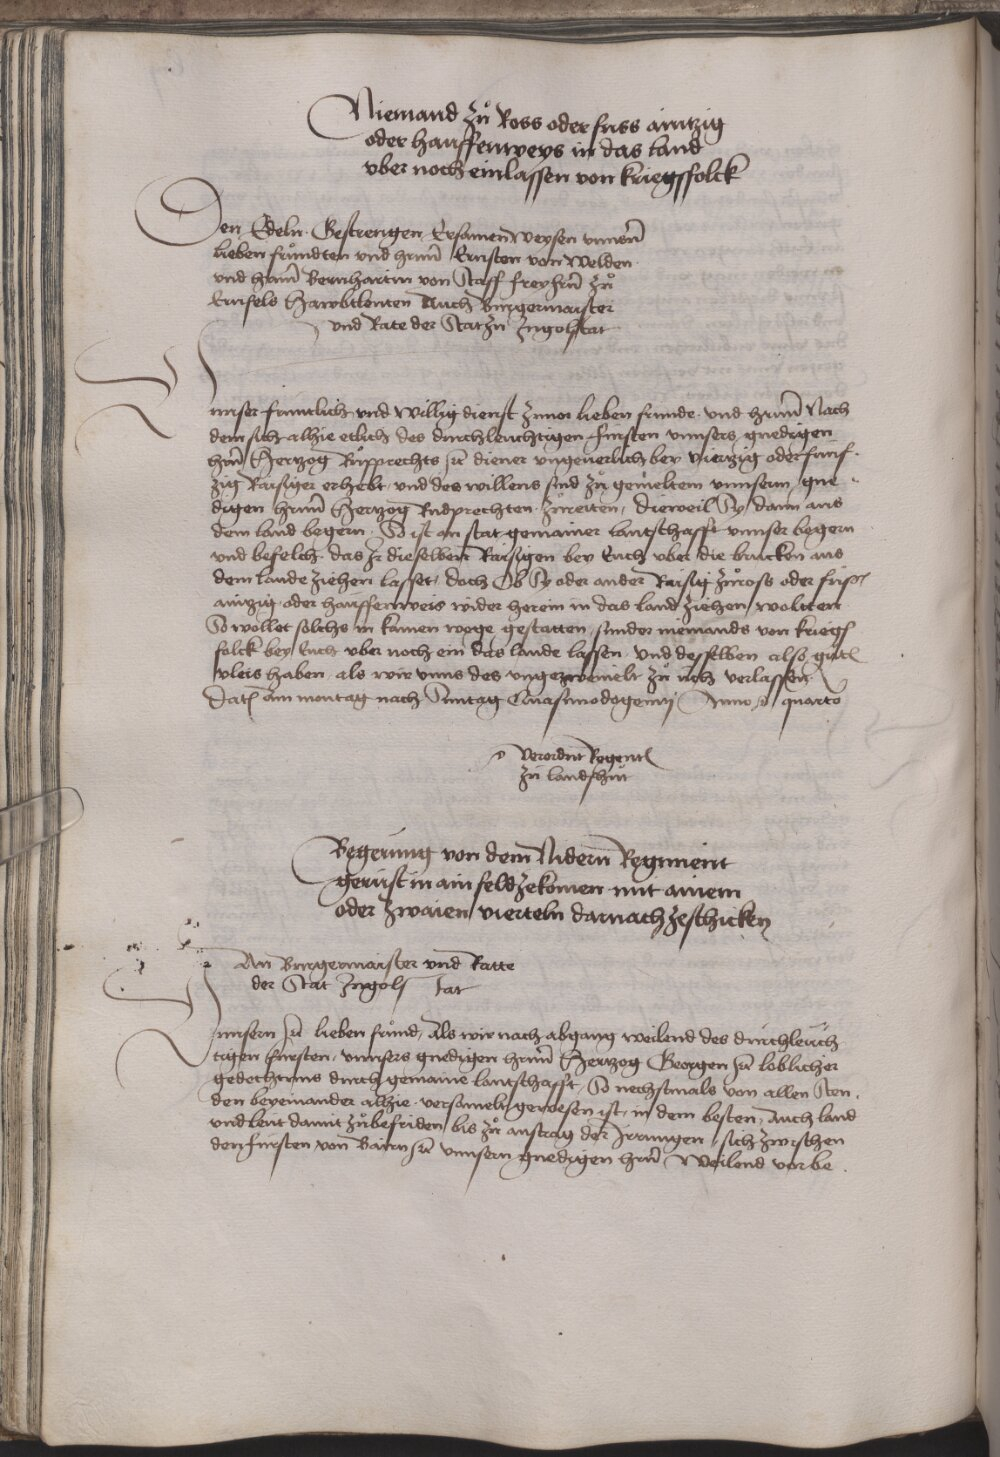 Niemand zů Ross oder fuss aintzig
oder hauffenweys in das land
vber noch einlassen von kriegsfolck
Den Edeln Gestrengen Ersamen Weysen vnnsern̄
lieben frŭndten vnd herrn̄ Ernsten von Welden
vnd herrn̄ Bernhartin von Stauff freyhrn̄ zů
Ernfels Hawbtleuten Auch Burgermaister
vnd Rate der Stat zu Ingolstat
Vnnser frŭntlich vnd willig dienst zuuor lieben frunde vnd herrn̄ Nach
dem sich alhie etlich des durchleuchtigen fursten vnnsers gnedigen
hrn̄ Hertzog Rŭpprechts &c diener vngeuerlich bey viertzig oder funf-
zig Raisiger erhebt vnd des willens sind zu gemeltem vnnserm gne-
digen herrn̄ Hertzog Rudprechten zureiten, dieweil Sy dann aus
dem land begern So ist an stat gemainer lantschafft vnnser begern
vnd befelch das Ir dieselben Raisigen bey Euch vber die brucken aus
dem lande ziehen lasset, doch Ob Sy oder ander Raisig zuross oder fuss
aintzig oder hauffenweis wider herein in das land ziehen wolten
So wöllet solchs in kainen wege gestatten, sunder niemands von kriegs
folck bey Euch vber noch ein das lande lassen vnd desselben also gut
vleis haben, als wir vnns des vngezweiuelt zů uch verlassen
Dat am montag nach Sunntag Quasimodogenitj Anno &c quarto
Verordnt Regent
zu landshut
Begerung von dem Nidern̄ Regiment
gerust in ain feld zekomen mit ainem
oder zwaien vierteln darnach zeschicken
An Burgermaister vnd Ratte
der Stat Ingolstat
Vnnsern &c lieben frŭnd, Als wir nach abgang weilend des durchleuch
tigen fursten, vnnsers gnedigen herrn̄ Hertzog Georgen &c loblicher
gedechtnus durch gemaine lantschafft, So nechstmals von allen Sten-
den beyeinander alhie versamelt gewesen ist, in dem besten, Auch land
vnd leut damit zů befriden, bis zů austrag der Irrungen, sich zwischen
den fursten von Bairn &c vnnsern gnedigen hrn̄ Weilend vorbe